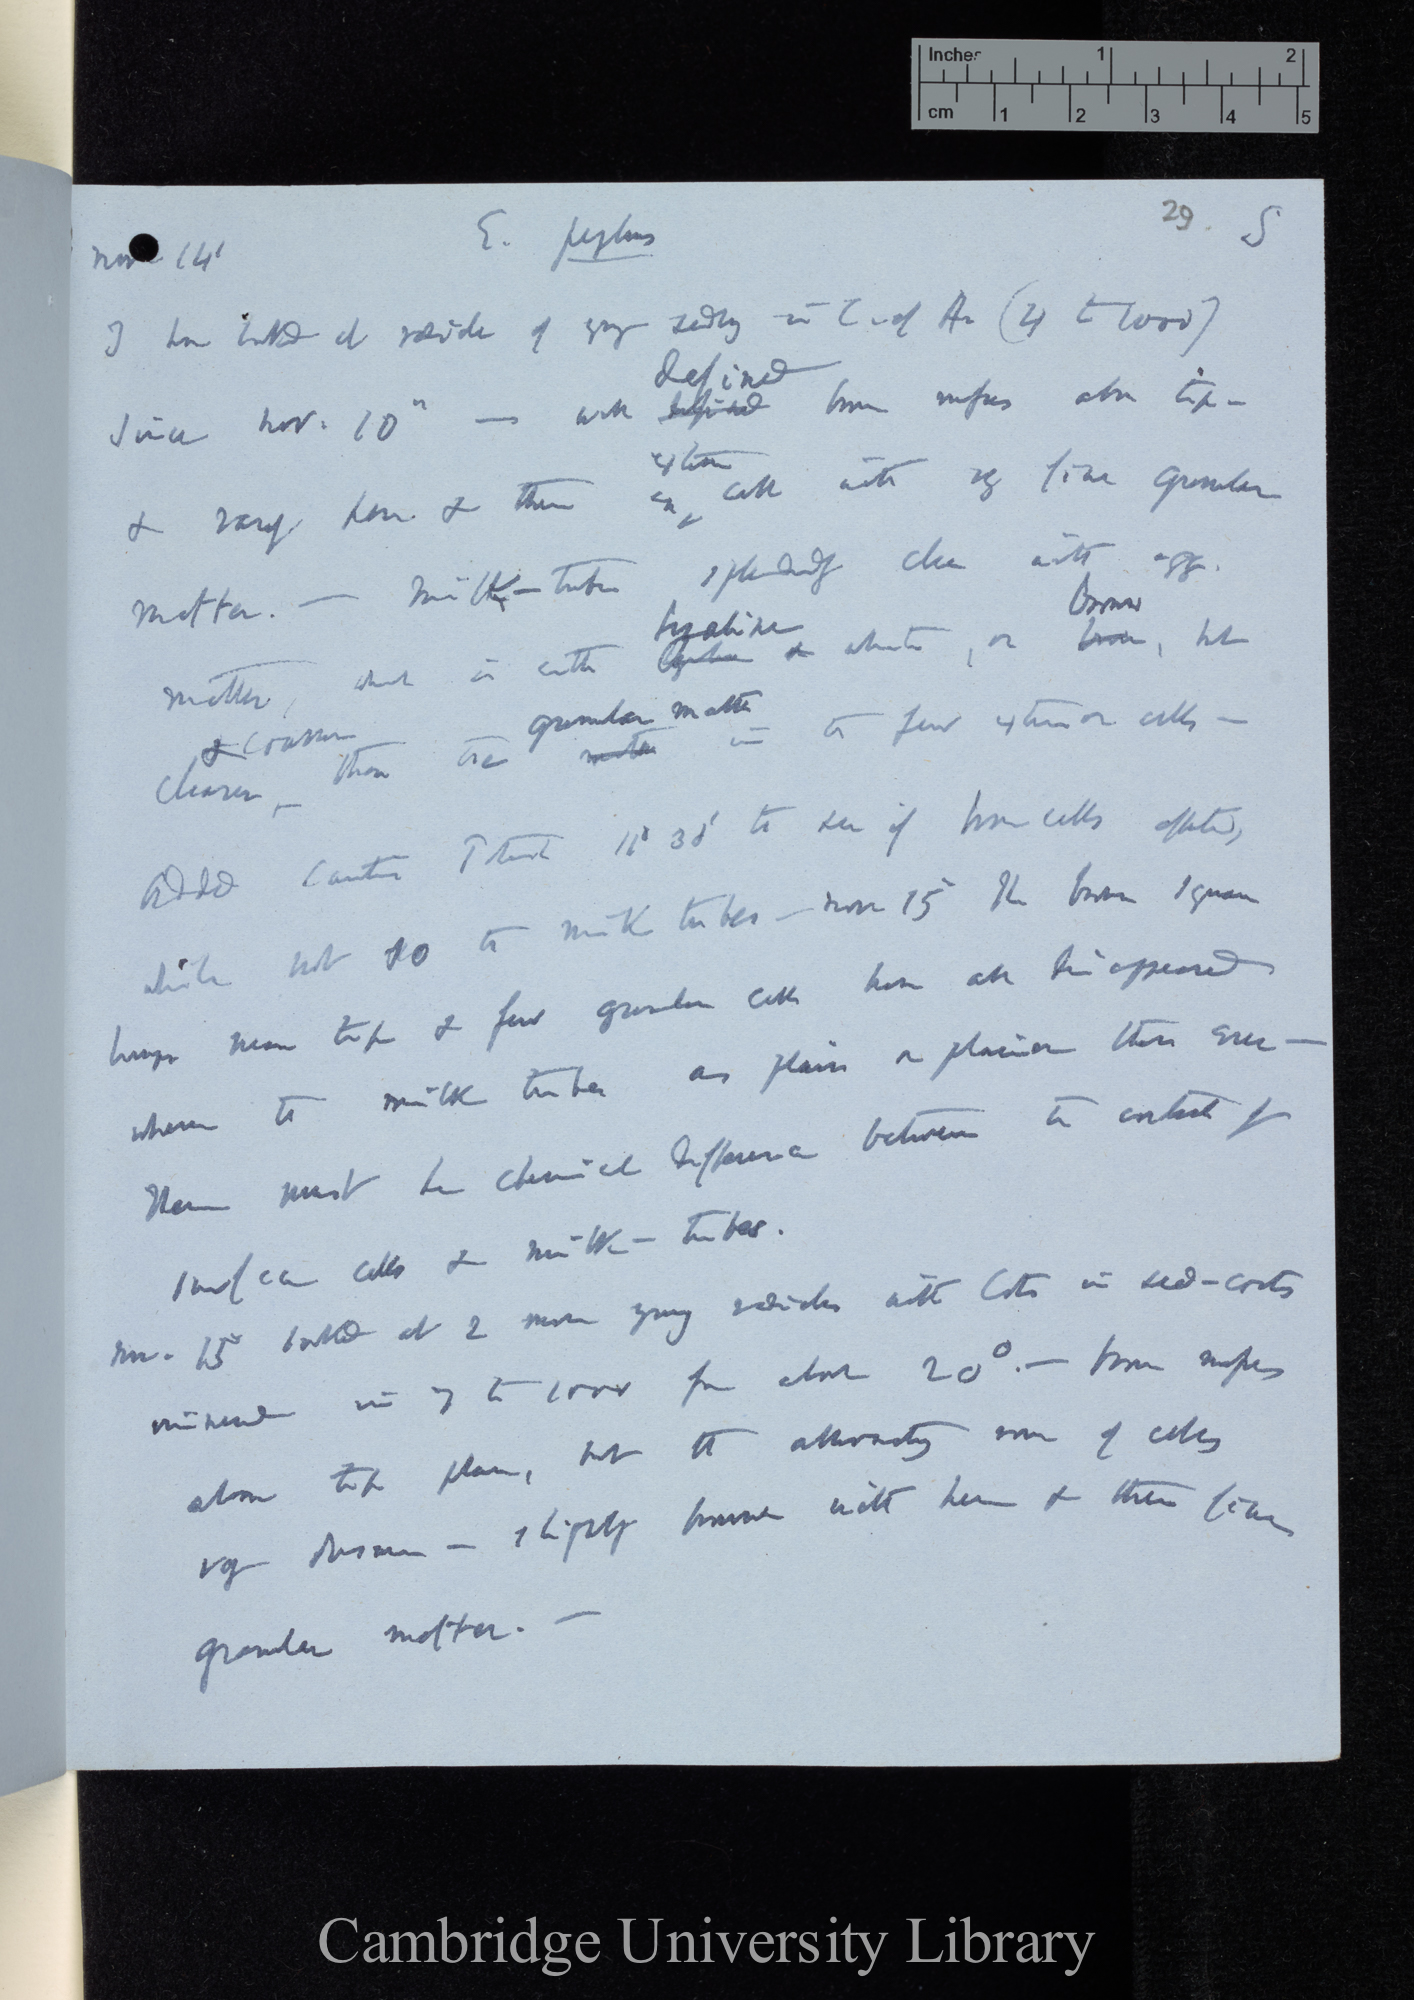 Inches 1 2
cm 1 2 3 4 5
29. 5
E. peplus
Nov 14'
I have looked at radicle of young in C. of Am (4 to 1000)
Since Nov. 10" — with defined brown above tip —
& very here & there ex cells with v fine granular
matter. — milk-tubes splendidly clear with agg.
matter, which is either hyaline & white, or brown, but
clearer & coarser than the granular matter in the few exterior cells —
Added Caustic Potash 11° 38' to see if brown cells affected,
while not so the milk tubes — Nov 15 The brown square
near tip & few granular cells have all disappeared
whereas the milk tubes as plain or plainer than ever —
There must be chemical difference between the contents of
surface cells & milk-tubes.
Nov. 15 looked at 2 more young radicles with Cots in seed-coats
immersed in 7 to 1000 for about 20°. — brown
above tip plain, but the alternating rows of cells
vy obscure — slightly browner with here & there fine
granular matter. —
Cambridge University Library